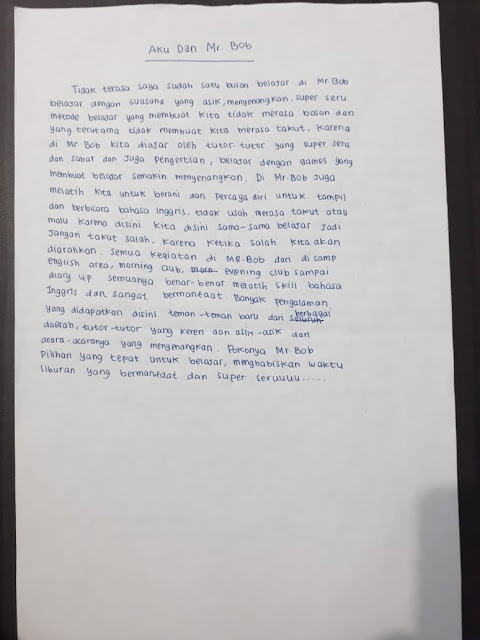 AKU DAN Mr. BOB
Tidak terasa saya sudah satu bulan belajar di Mr.Bob
belajar dengan suasana yang asik, menyenangkan, super seru
metode belajar yang membuat kita tidak merasa bosan dan
yang terutama tidak membuat kita merasa takut, karena
di Mr Bob kita diajar oleh tutor-tutor yang super seru
dan sabar dan juga pengertian, belajar dengan games yang
membuat belajar semakin menyenangkan. Di Mr.Bob juga
melatih kita untuk berani dan percaya diri untuk tampil
dan berbicara bahasa inggris, tidak usah merasa takut atau
malu karena disini kita disini sama-sama belajar jadi
jangan takut salah, karena ketika salah kita akan
diarahkan. semua kegiatan di MR.BOB dari di camp
english area, morning club, evening club sampai
diary up semuanya benar-benar melatih skill bahasa
Inggris dan sangat bermanfaat. Banyak pengalaman
yang didapatkan disini teman-teman baru dari seluruh berbagai
daerah, tutor-tutor yang keren dan asik-asik dan
acara-acaranya yang menyenangkan. Pokonya Mr.Bob
pilihan yang tepat untuk belajar, menghabiskan waktu
liburan yang bermanfaat dan super seruuuu.....